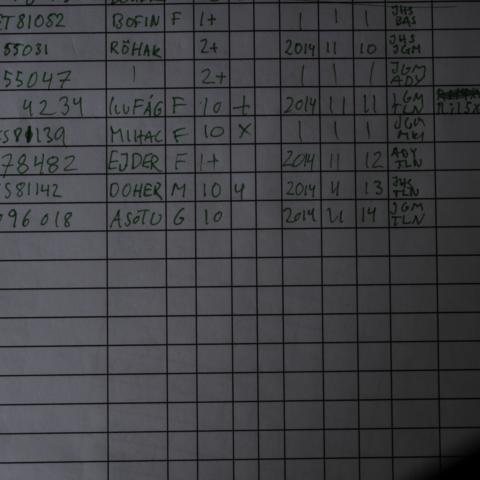 ET81052 BOFIN F 1+ | | | JHS BAS
55031 RÖHAK 2+ 2014 11 10 JHS JGM
55047 | 2+ | | | JGM ADY
4234 LUFÁG F 10 + 2014 11 11 JGM TLN
139 MIHAC F 10 X | | | JGM
78482 EJDER F 1+ 2014 11 12 ADY TLN
S81142 DOHER M 10 4 2014 11 13 JHS TLN
096 018 G 10 2014 11 14 JGM TLN